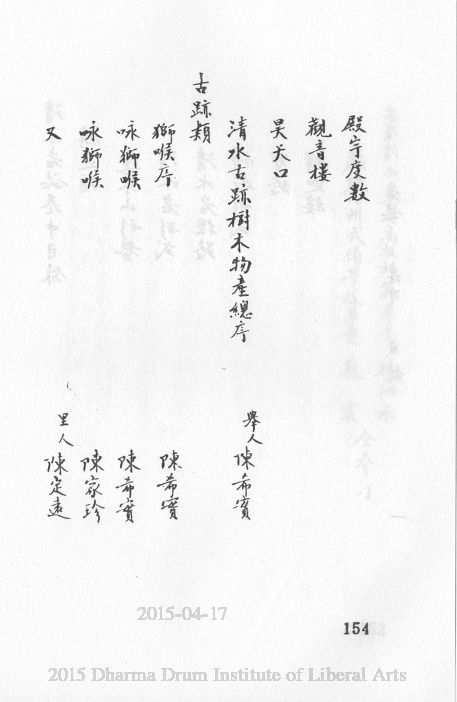 殿宇度數
觀音樓
昊天口
清水古跡樹木物產總序 舉人陳希實
古跡類
獅喉序 陳希實
咏獅喉 陳希實
咏獅喉 陳家珍
又 里人陳定遠
2015-04-17
154
2015 Dharma Drum Institute of Liberal Arts